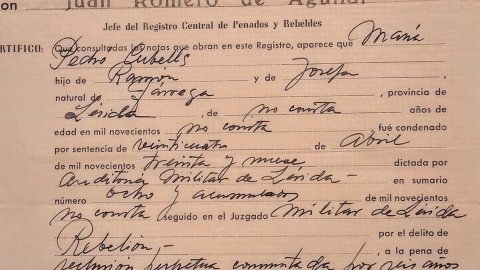 on Juan Romero de Aguilar
Jefe del Registro Central de Penados y Rebeldes
ERTIFICO: Que consultadas las notas que obran en este Registro, aparece que María
Pedro Cubells
hijo de Ramón y de Josefa
natural de , provincia de
Lérida , de no consta años de
edad en mil novecientos no consta fué condenado
por sentencia de veinticuatro de Abril
de mil novecientos treinta y nueve dictada por
Auditoria Militar de Lérida — en sumario
número ocho y acumulados de mil novecientos
no consta seguido en el Juzgado Militar de Lérida
por el delito de
Rebelión — a la pena de
reclusión perpetua conmutada por seis años